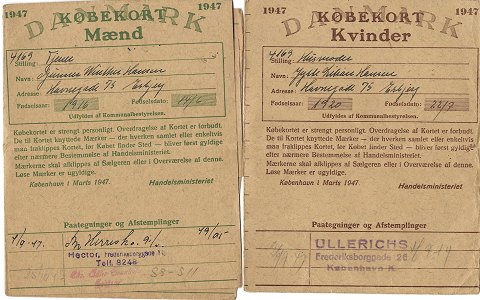 1947 DANMARK 1947
KØBEKORT
Mænd
4163
Stilling: Tjener
Navn: Gunner Hansen
Adresse: Havnegade 75 Esbjerg
Fødselsaar: 1916 Fødselsdato: 14/6
Udfyldes af Kommunalbestyrelsen.
Købekortet er strengt personligt. Overdragelse af Kortet er forbudt.
De til Kortet knyttede Mærker — der hverken samlet eller enkeltvis
man fraklippes Kortet, før Købet finder Sted — bliver først gyldige
efter nærmere Bestemmelse af Handelsministeriet.
Mærkerne skal afklippes af Sælgeren eller i Overværelse af denne.
Løse Mærker er ugyldige.
København i Marts 1947. Handelsministeriet
Paategninger og Afstemplinger
Hector, Frederiksborggade
Tclf. 8246
1947 DANMARK 1947
KØBEKORT
Kvinder
4163
Stilling: Husmoder
Navn: Hansen
Adresse: Havnegade 75 Esbjerg
Fødselsaar: 1920 Fødselsdato: 22/7
Udfyldes af Kommunalbestyrelsen.
Købekortet er strengt personligt. Overdragelse af Kortet er forbudt.
De til Kortet knyttede Mærker — der hverken samlet eller enkeltvis
maa fraklippes Kortet, før Købet finder Sted — bliver først gyldige
efter nærmere Bestemmelse af Handelsministeriet.
Mærkerne skal afklippes af Sælgeren eller i Overværelse af denne.
Løse Mærker er ugyldige.
København i Marts 1947. Handelsministeriet
Paategninger og Afstemplinger
ULLERICHS
Frederiksborggade 26
København K.